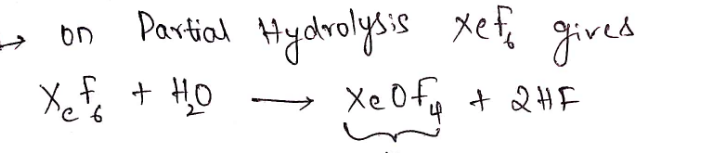 → on Partial Hydrolysis XeF₆ gives
XeF₆ + H₂O ⟶ XeOF₄ + 2HF